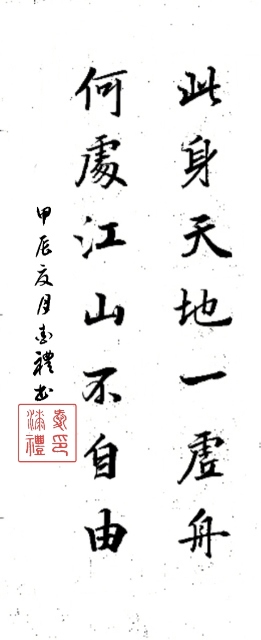 此身天地一虛舟
何處江山不自由
甲辰夏月袁禮書